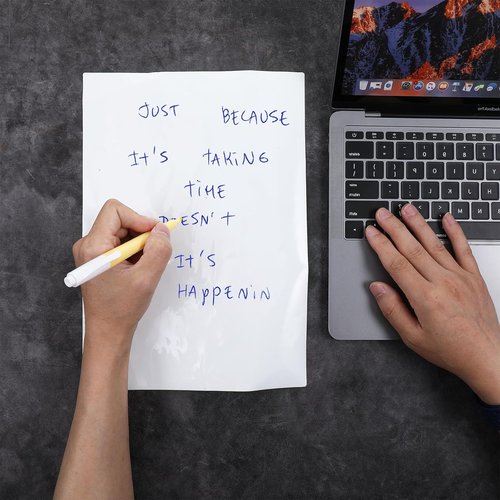 JUST BECAUSE
It's tAKING
tiME
DOESN't
It's
HAppENIN